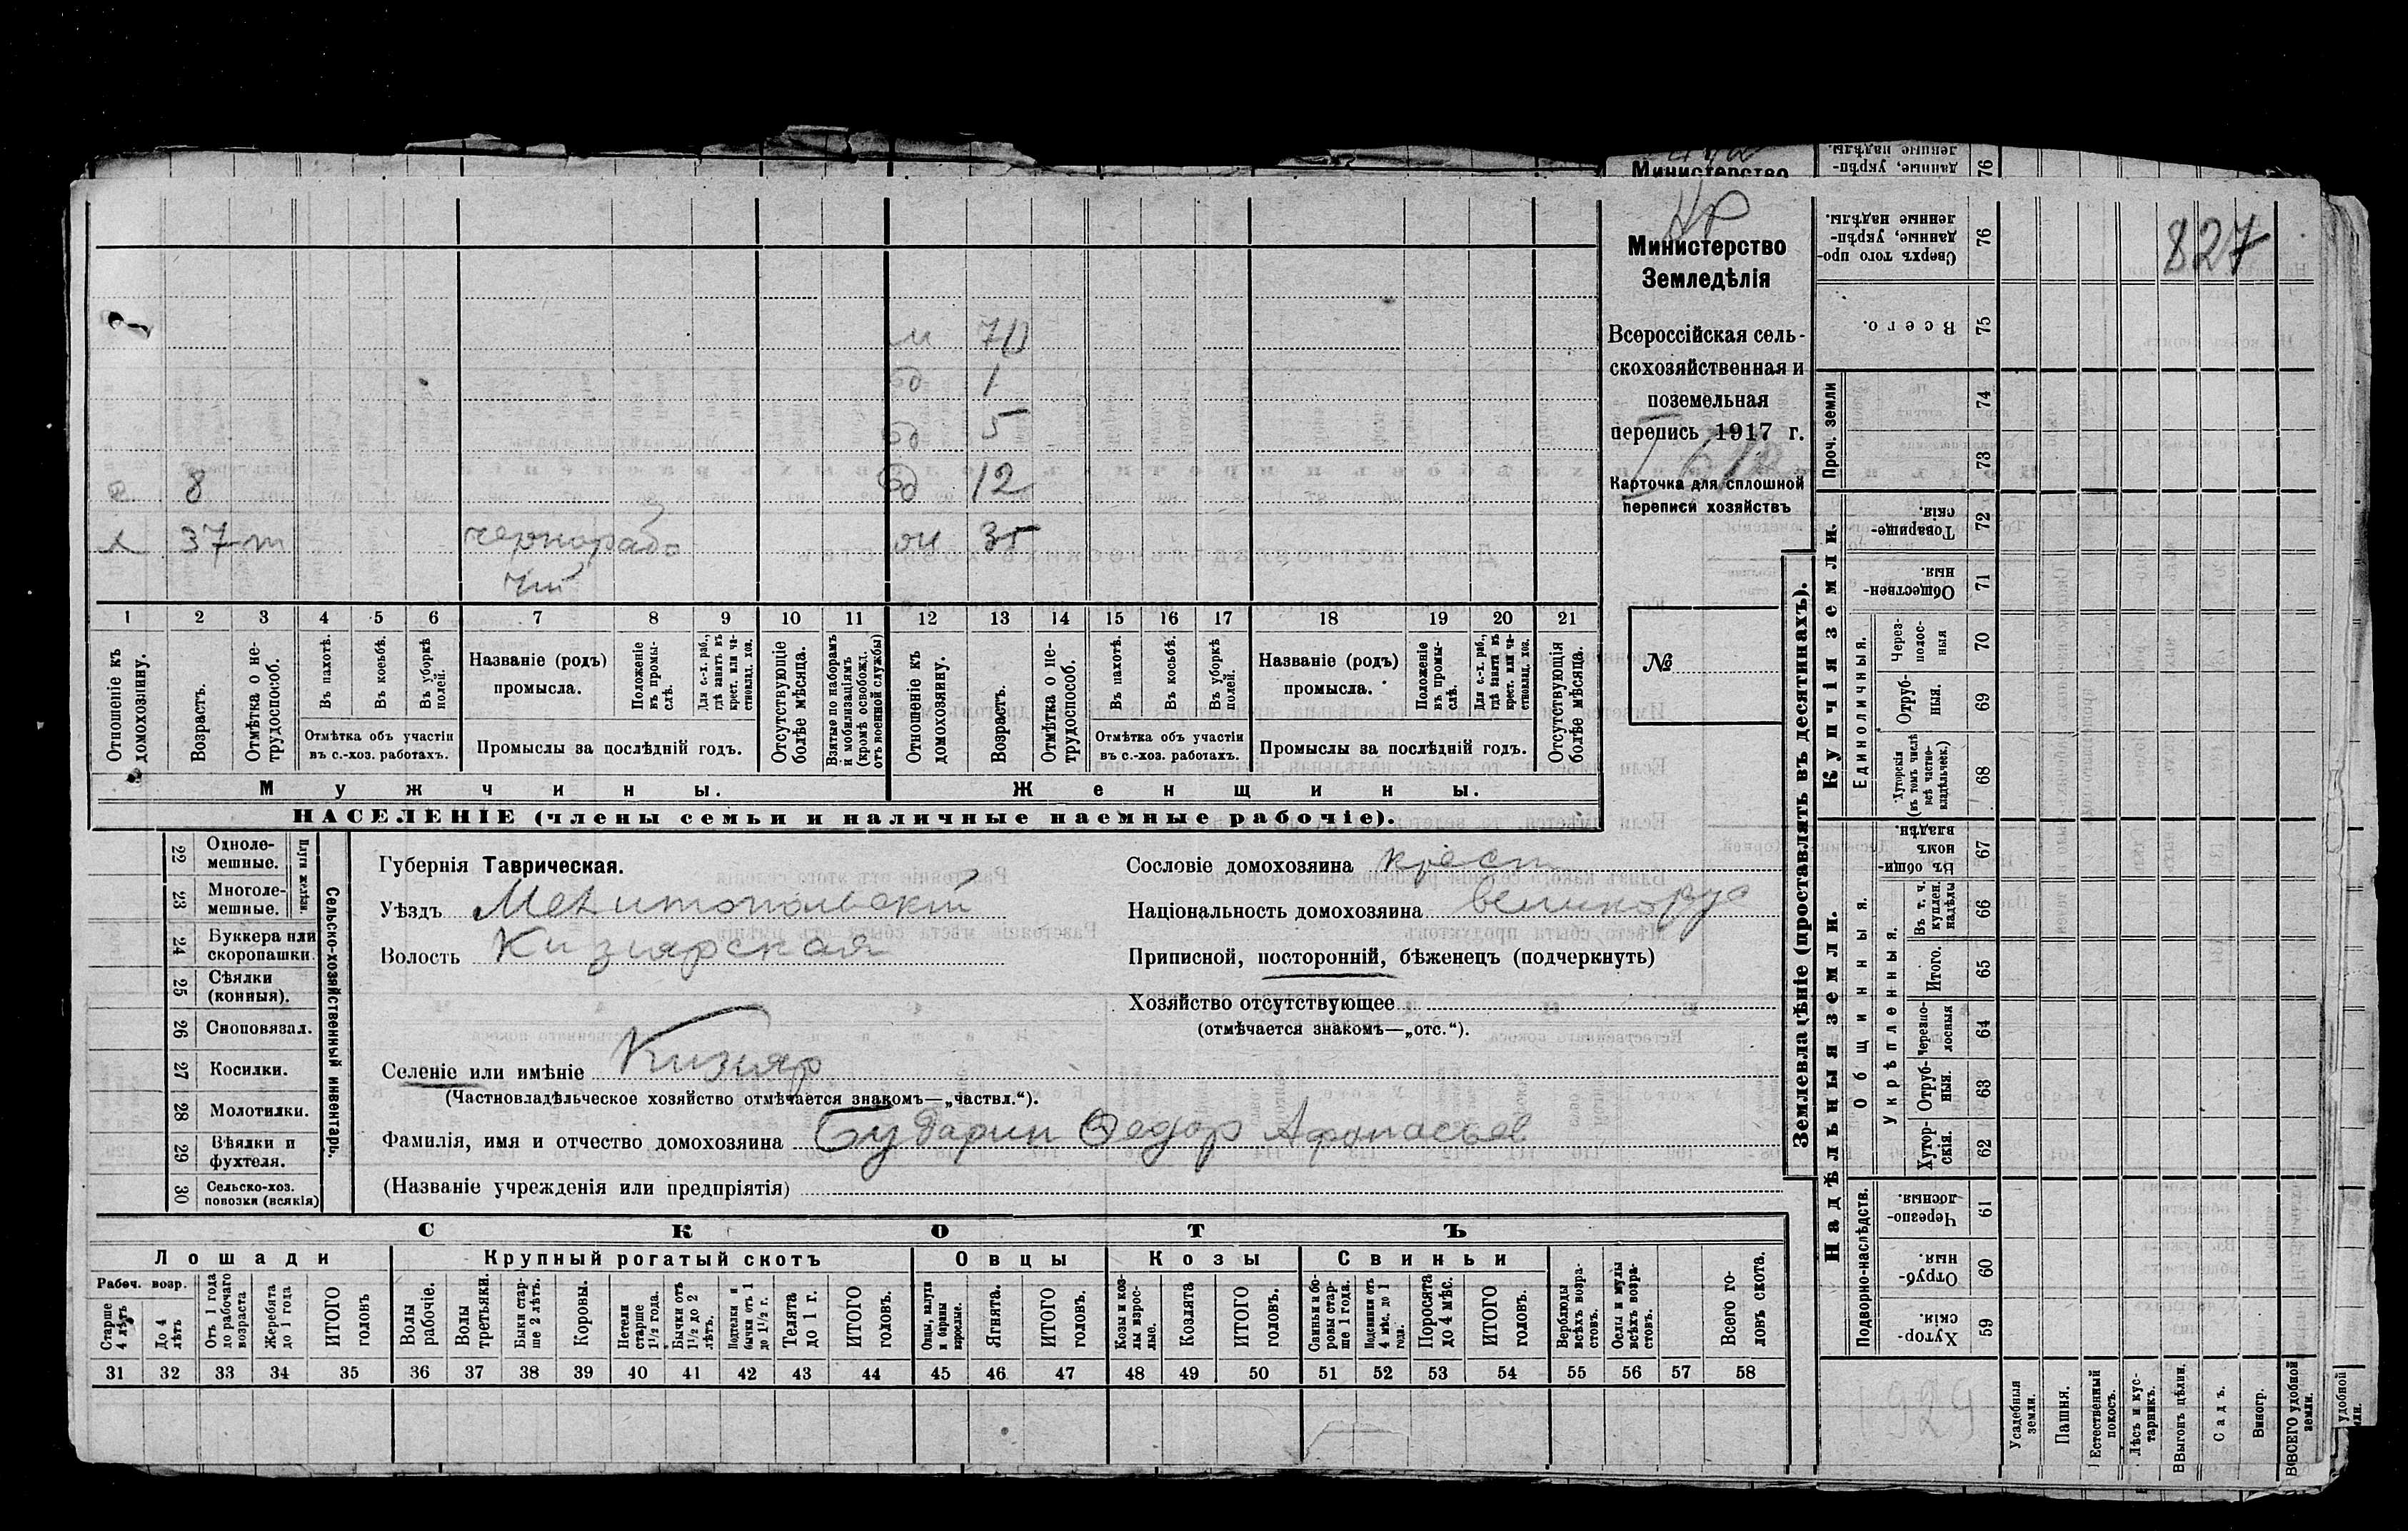 Министерство
Земледѣлія
Всероссійская сель-
скохозяйственная и
поземельная
перепись 1917 г.
Карточка для сплошной
переписи хозяйствъ
№
827
м 70
1
5
8 12
37 т чернорабо 35
чій
1 2 3 4 5 6 7 8 9 10 11 12 13 14 15 16 17 18 19 20 21
Отношеніе къ домохозяину.
Возрастъ.
Отмѣтка о не-трудоспособ.
Въ пахотѣ.
Въ косьбѣ.
Въ уборкѣ полей.
Отмѣтка объ участіи
въ с.-хоз. работахъ.
Названіе (родъ)
промысла.
Положеніе въ промы-слѣ.
Для с.-х. раб., гдѣ занятъ въ крест. или ча-стновлад. хоз.
Промыслы за послѣдній годъ.
Отсутствующіе болѣе мѣсяца.
Взятые по наборамъ и мобилизаціямъ (кромѣ освобожд. отъ военной службы)
Отношеніе къ домохозяину.
Возрастъ.
Отмѣтка о не-трудоспособ.
Въ пахотѣ.
Въ косьбѣ.
Въ уборкѣ полей.
Отмѣтка объ участіи
въ с.-хоз. работахъ.
Названіе (родъ)
промысла.
Положеніе въ промы-слѣ.
Для с.-х. раб., гдѣ заняты въ крест. или ча-стновлад. хоз.
Промыслы за послѣдній годъ.
Отсутствующія болѣе мѣсяца.
Мужчины. Женщины.
НАСЕЛЕНІЕ (члены семьи и наличные наемные рабочіе).
Сельско-хозяйственный инвентарь.
Плуги желѣзн.
22 Одноле-мешные.
23 Многоле-мешные.
24 Буккера или скоропашки.
25 Сѣялки (конныя).
26 Сноповязал.
27 Косилки.
28 Молотилки.
29 Вѣялки и фухтеля.
30 Сельско-хоз. повозки (всякія)
Губернія Таврическая.
Уѣздъ Мелитопольскій
Волость Кизиярская
Селеніе или имѣніе Кизияр
(Частновладѣльческое хозяйство отмѣчается знакомъ—„частвл.“).
Фамилія, имя и отчество домохозяина Бударин Ѳедор Афонасьев
(Названіе учрежденія или предпріятія)
Сословіе домохозяина крест
Національность домохозяина великорус
Приписной, посторонній, бѣженецъ (подчеркнуть)
Хозяйство отсутствующее
(отмѣчается знакомъ—„отс.“).
СКОТЪ
Лошади Крупный рогатый скотъ Овцы Козы Свиньи
Рабоч. возр.
Старше 4 лѣтъ
До 4 лѣтъ
Отъ 1 года до рабочаго возраста
Жеребята до 1 года
ИТОГО головъ
Волы рабочіе.
Волы третьяки.
Быки стар-ше 2 лѣтъ.
Коровы.
Нетели старше 1½ года.
Бычки отъ 1½ до 2 лѣтъ.
Подтелки и бычки отъ 1 до 1½ г.
Телята до 1 г.
ИТОГО головъ.
Овцы, валухи и бараны взрослые.
Ягнята.
ИТОГО головъ.
Козы и коз-лы взрос-лые.
Козлята
ИТОГО головъ.
Свиньи и бо-ровы стар-ше 1 года.
Подсвинки отъ 4 мѣс. до 1 года.
Поросята до 4 мѣс.
ИТОГО головъ.
Верблюды всѣхъ возра-стовъ.
Ослы и мулы всѣхъ возра-стовъ.
Всего го-ловъ скота.
31 32 33 34 35 36 37 38 39 40 41 42 43 44 45 46 47 48 49 50 51 52 53 54 55 56 57 58
Землевладѣніе (проставлять въ десятинахъ).
Надѣльныя земли. Купчія земли. Проч. земли
Подворно-наслѣдств.
Общинныя.
Укрѣпленныя.
Единоличныя.
76 Сверхъ того про-данные, укрѣп-ленные надѣлы.
75 Всего.
74
73
72 Товарище-скія.
71 Обществен-ныя.
70 Через-полос-ныя
69 Отруб-ныя.
68 Хуторскія (въ томъ числѣ всѣ частно-владѣльческ.)
67 Въ общи-номъ владѣн.
66 Въ т. ч. куплен. надѣлы
65 Итого.
64 Черезпо-лосныя
63 Отруб-ныя.
62 Хутор-скія.
61 Черезпо-лосныя.
60 Отруб-ныя.
59 Хутор-скія.
929
Усадебныя земли.
Пашня.
Естественный покосъ.
Лѣсъ и кус-тарникъ.
Выгонъ цѣлин.
Садъ.
Виногр.
ВСЕГО удобной земли.